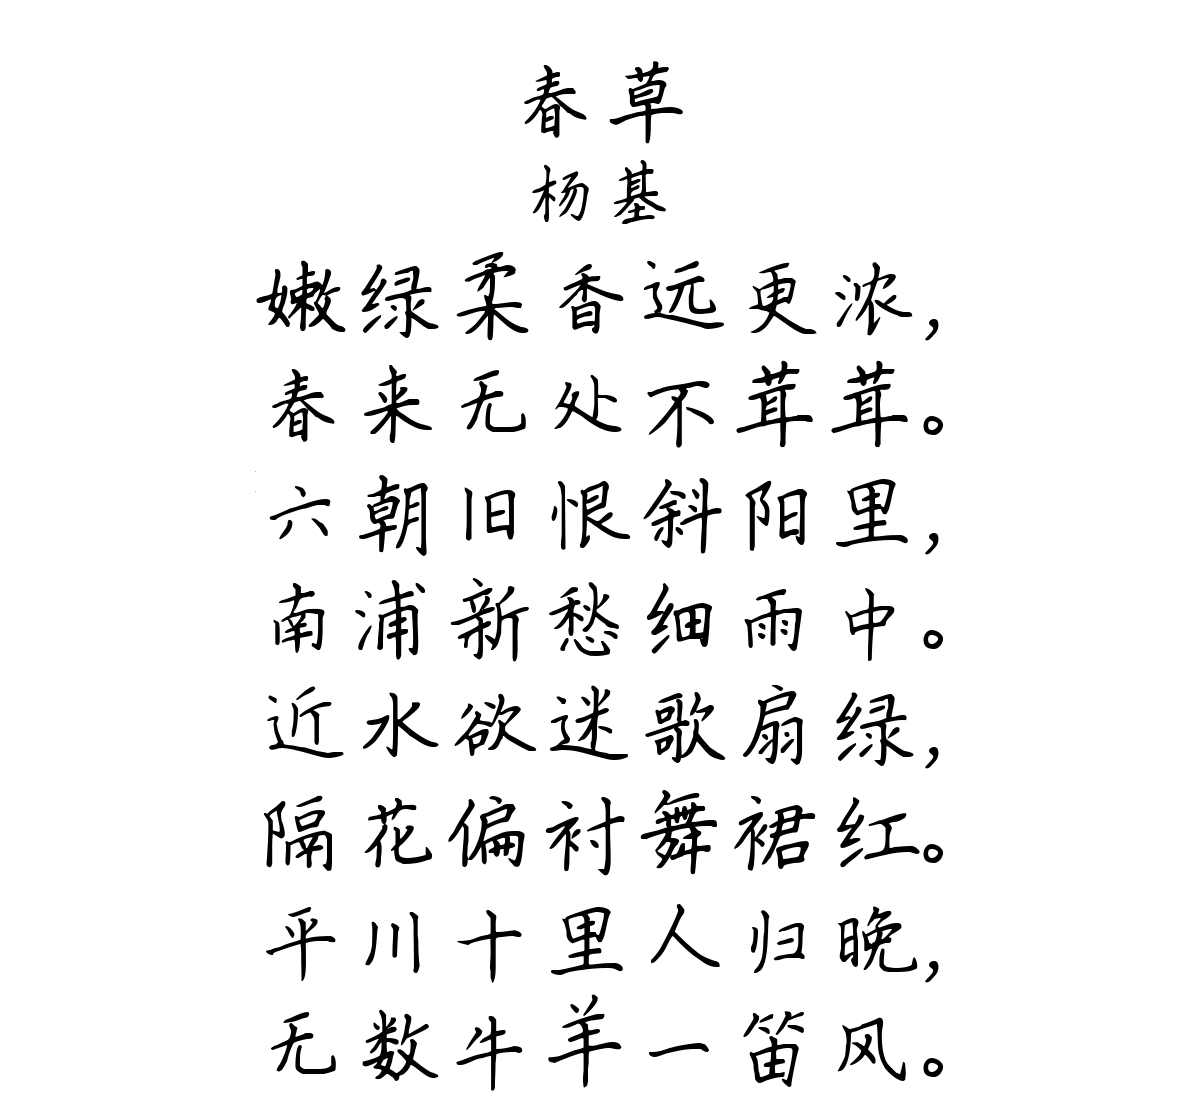 春草
杨基
嫩绿柔香远更浓，
春来无处不茸茸。
六朝旧恨斜阳里，
南浦新愁细雨中。
近水欲迷歌扇绿，
隔花偏衬舞裙红。
平川十里人归晚，
无数牛羊一笛风。